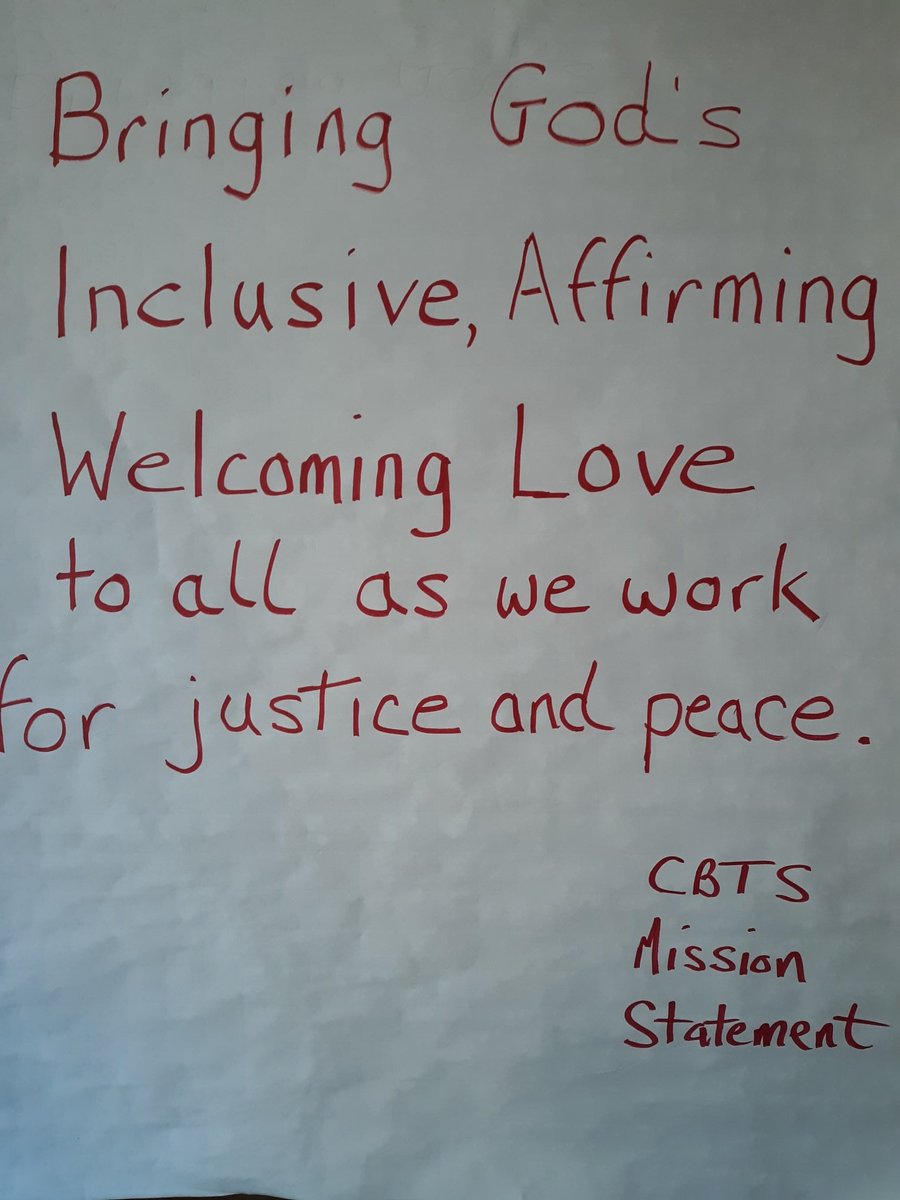 Bringing God's
Inclusive, Affirming
Welcoming Love
to all as we work
for justice and peace.
CBTS
Mission
Statement